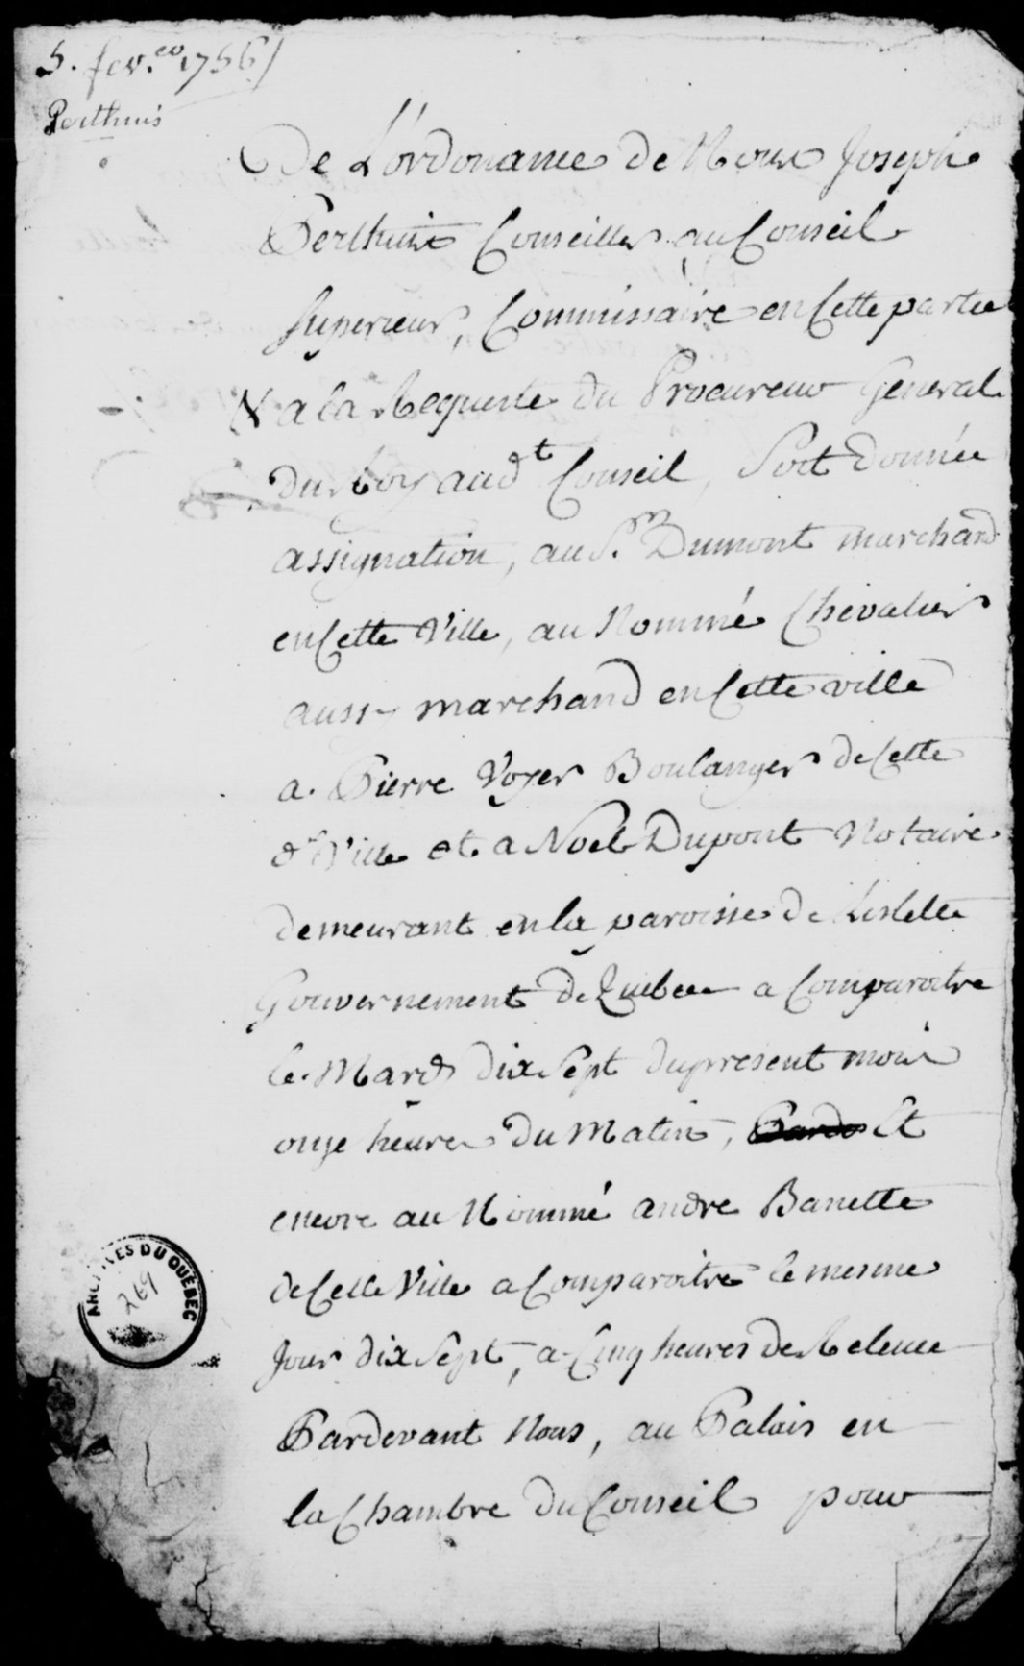 5. fev.er 1756/
Perthuis
De L'ordonance de Nous Joseph
Perthuis Conseiller au Conseil
superieur, Commissaire en Cette partie
& a la Requeste du Procureur General
du Roy aud.t Conseil, soit donnée
assignation, au S.r Dumont marchand
en Cette Ville, au Nommé Chevalier
aussy marchand en Cette ville
a Pierre Voyer Boulanger de Cette
d.e Ville et a Noel Dupont Notaire
demeurant en la paroisse de Lislette
Gouvernement de Quebec a Comparoitre
le Mardy dix Sept du present mois
onze heures du Matin, Et
encore au Nommé andre Banette
de Cette Ville a Comparoitre le mesme
Jour dix Sept, a Cinq heures de Relevee
Pardevant Nous, au Palais en
la Chambre du Conseil pour
ARCHIVES DU QUÉBEC
269